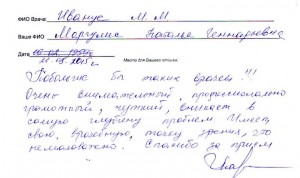 ФИО Врача: Иванус М М
Ваше ФИО Маргулис Наталья Геннадьевна
Дата
11.03.2015 г.
Место для Вашего отзыва:
Побольше бы таких врачей!!!
Очень внимательный, профессионально
грамотный, чуткий, вникает в
самую глубину проблем. Имеет
свою, врачебную, точку зрения, что
немаловажно. Спасибо за прием